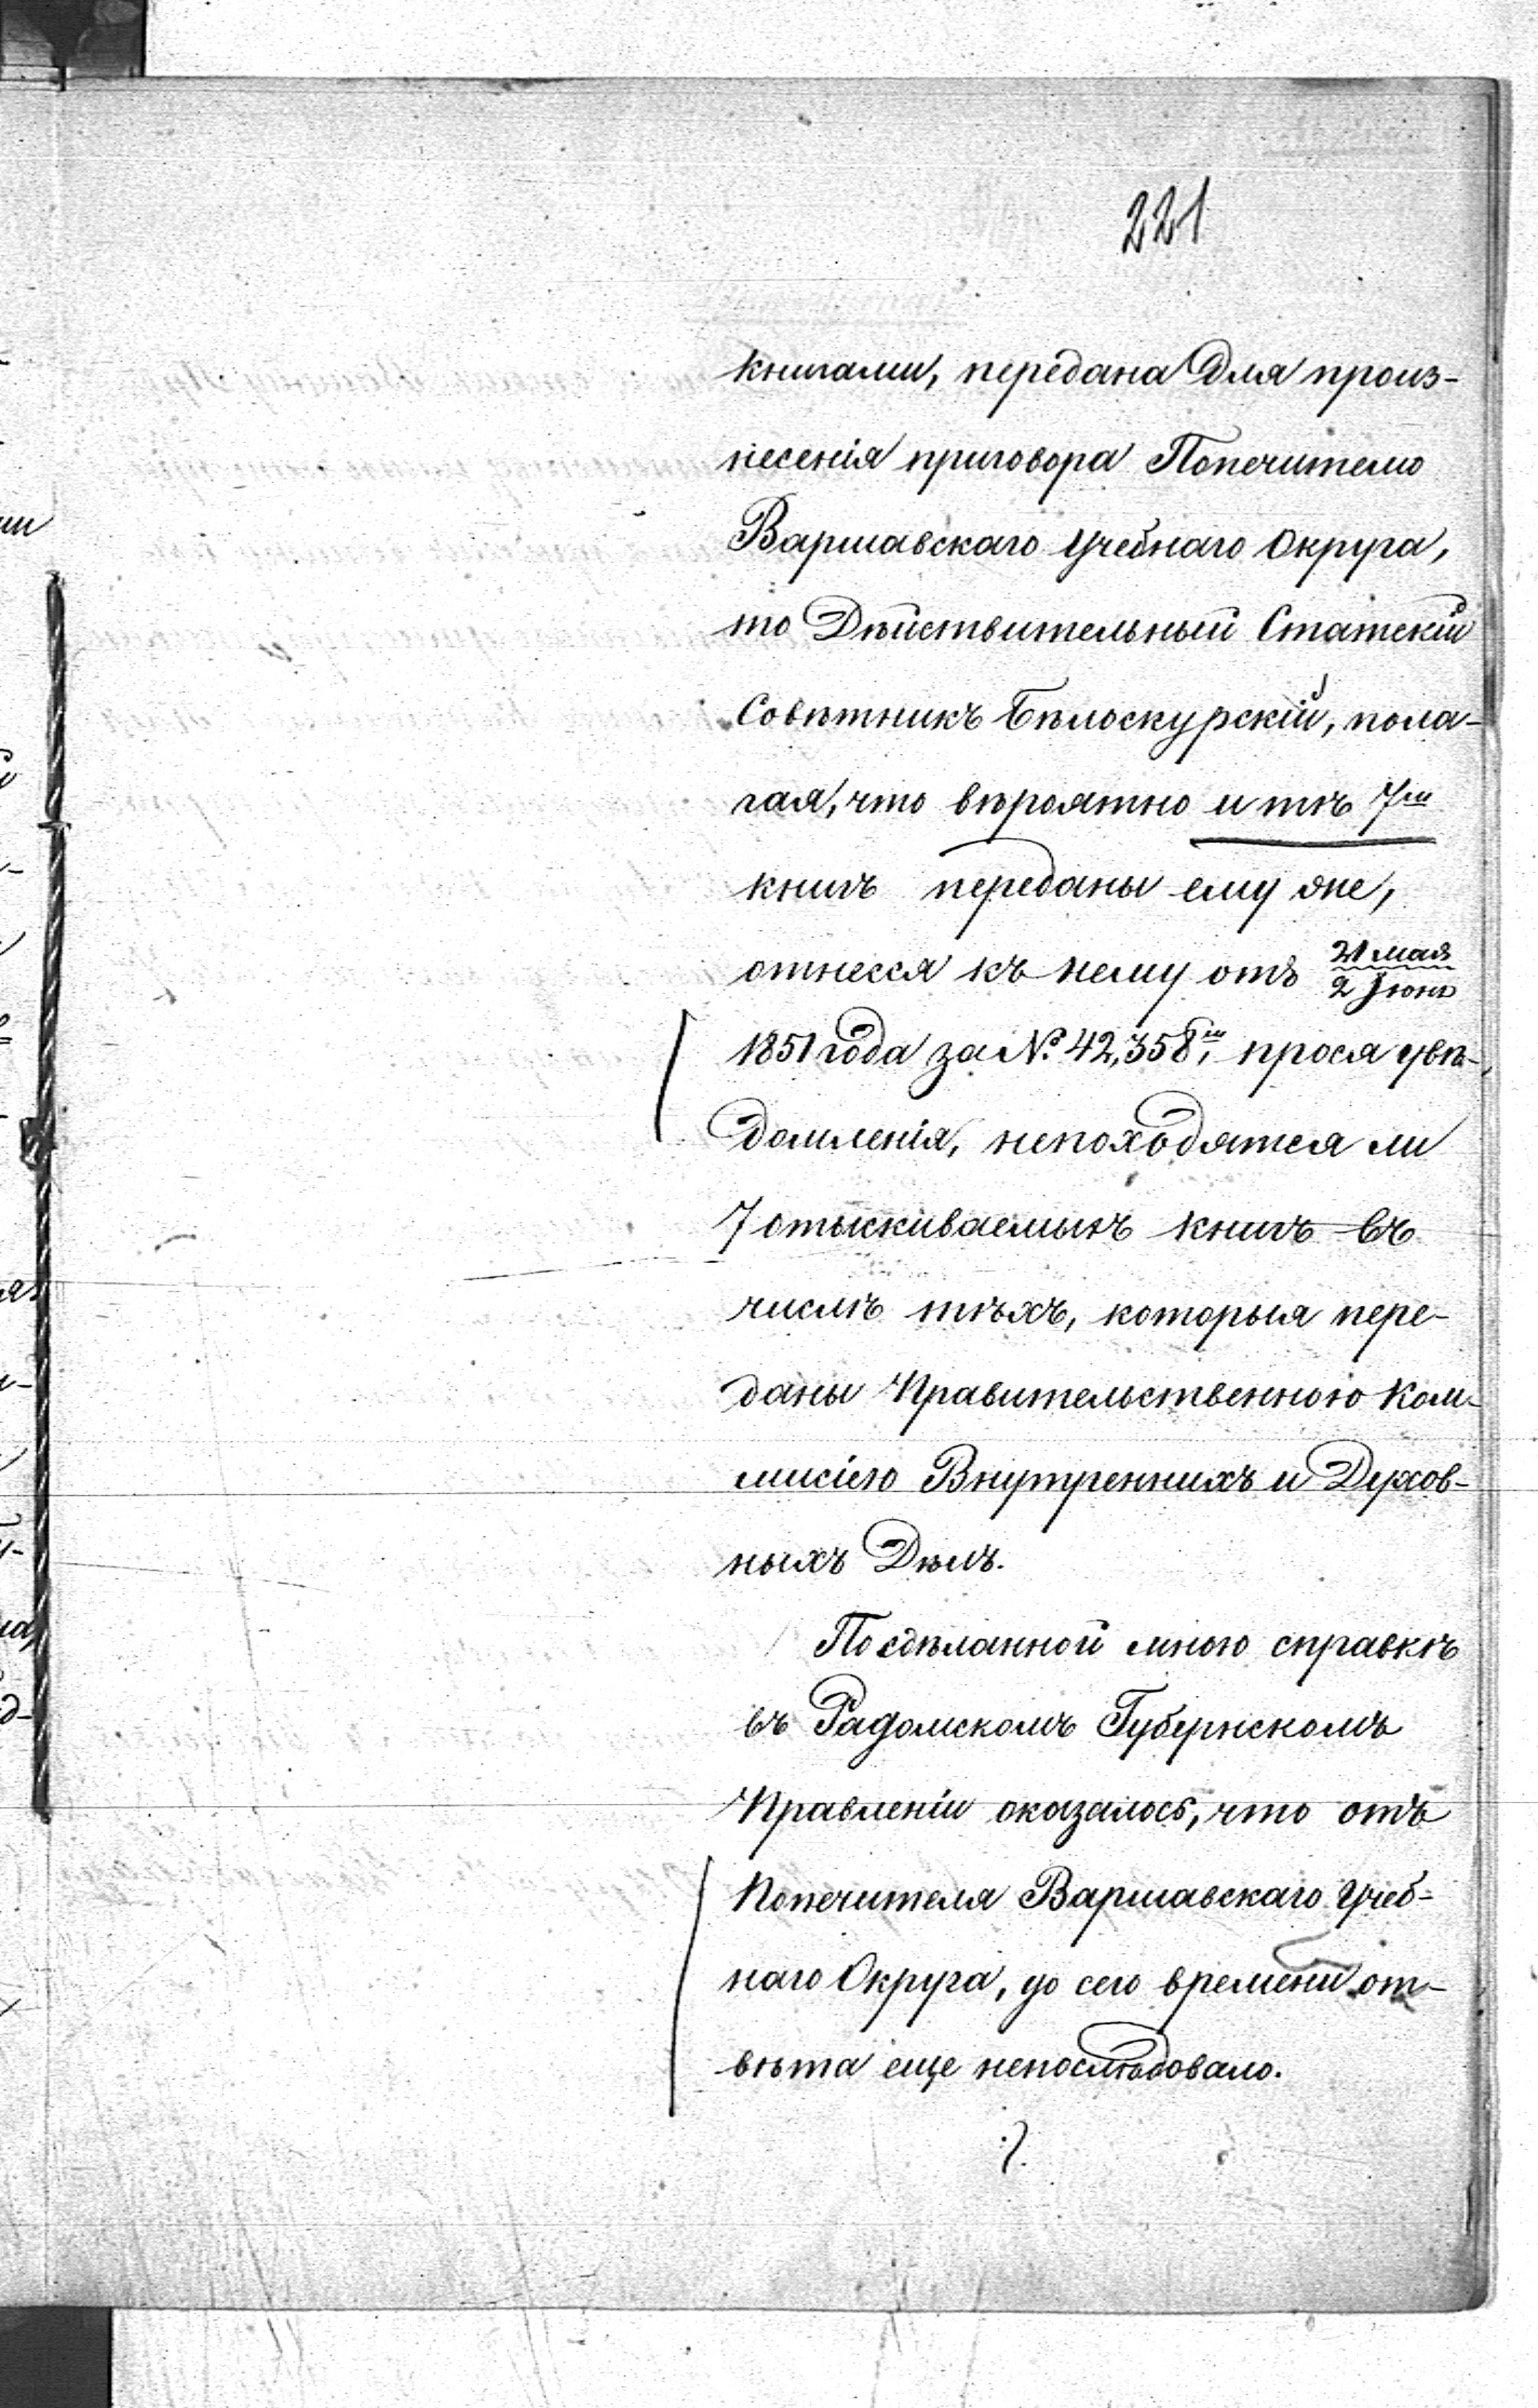 221
книгами, передана для произ-
несенія приговора Попечителю
Варшавскаго Учебнаго Округа,
то Дѣйствительный Статскій
Совѣтникъ Бѣлоскурскій, пола-
гая, что вѣроятно и тѣ 7ш
книгъ переданы ему же,
отнесся къ нему отъ 21 мая
2 Іюня
1851 года за №. 42,358ш, прося увѣ-
домленія, непоходятся ли
7 отыскиваемыхъ книгъ въ
числѣ тѣхъ, которыя пере-
даны Правительственною Ком-
мисіею Внутреннихъ и Духов-
ныхъ Дѣлъ.
По сдѣланной мною справкѣ
въ Радомскомъ Губернскомъ
Правленіи оказалось, что отъ
Попечителя Варшавскаго Учеб-
наго Округа, до сего времени от-
вѣта еще непослѣдовало.